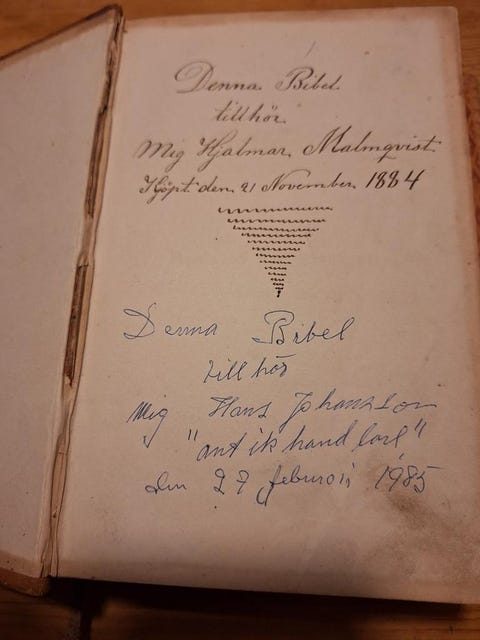 Denna Bibel
tillhör
Mig Hjalmar Malmqvist
Köpt den 21 November 1884
Denna Bibel
till hör
Mig Hans Johansson
"antikhandlare"
den 27 februari 1985